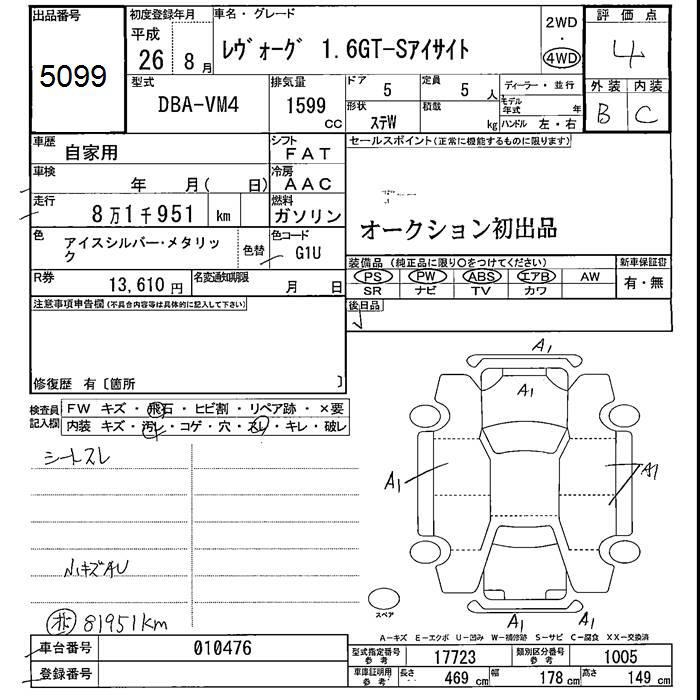 出品番号
5099
初度登録年月
平成
26年 8月
車名・グレード
レヴォーグ 1.6GT-Sアイサイト
2WD
・
4WD
評価点
4
外装 内装
B C
型式
DBA-VM4
排気量
1599
cc
ドア
5
定員
5人
形状
ステW
積載
kg
ディーラー・並行
モデル年式 年
ハンドル 左・右
車歴
自家用
シフト
FAT
車検
年 月( 日)
冷房
AAC
走行
8万1千951 km
燃料
ガソリン
色
アイスシルバー・メタリック
色替
色コード
G1U
R券
13,610円
名変通知期限
月 日
セールスポイント(正常に機能するものに限ります)
オークション初出品
装備品(純正品に限り○をつけてください)
PS PW ABS エアB AW
SR ナビ TV カワ
新車保証書
有・無
後日品
注意事項申告欄(不具合内容等は具体的に記入して下さい)
修復歴 有〔箇所 〕
検査員記入欄
FW キズ・飛石・ヒビ割・リペア跡・×要
内装 キズ・汚れ・コゲ・穴・スレ・キレ・破レ
シートスレ
小キズAU
81951km
A1
A1
A1
A1
A1
A1
スペア
A-キズ E-エクボ U-凹み W-補修跡 S-サビ C-腐食 XX-交換済
車台番号
010476
登録番号
型式指定番号
参考
17723
類別区分番号
参考
1005
車庫証明用
参考
長さ 469cm
幅 178cm
高さ 149cm